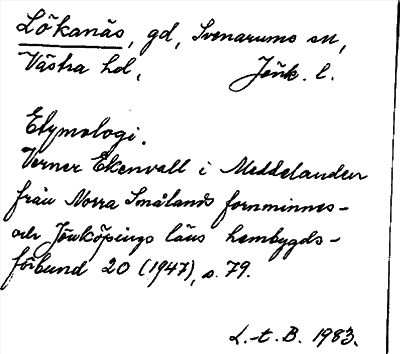 Lökanäs, gd, Svenarums sn,
Västra hd, Jönk. l.
Etymologi.
Verner Ekenvall i Meddelanden
från Norra Smålands fornminnes-
och Jönköpings läns hembygds-
förbund 20 (1947), s. 79.
L.-t. B. 1983.